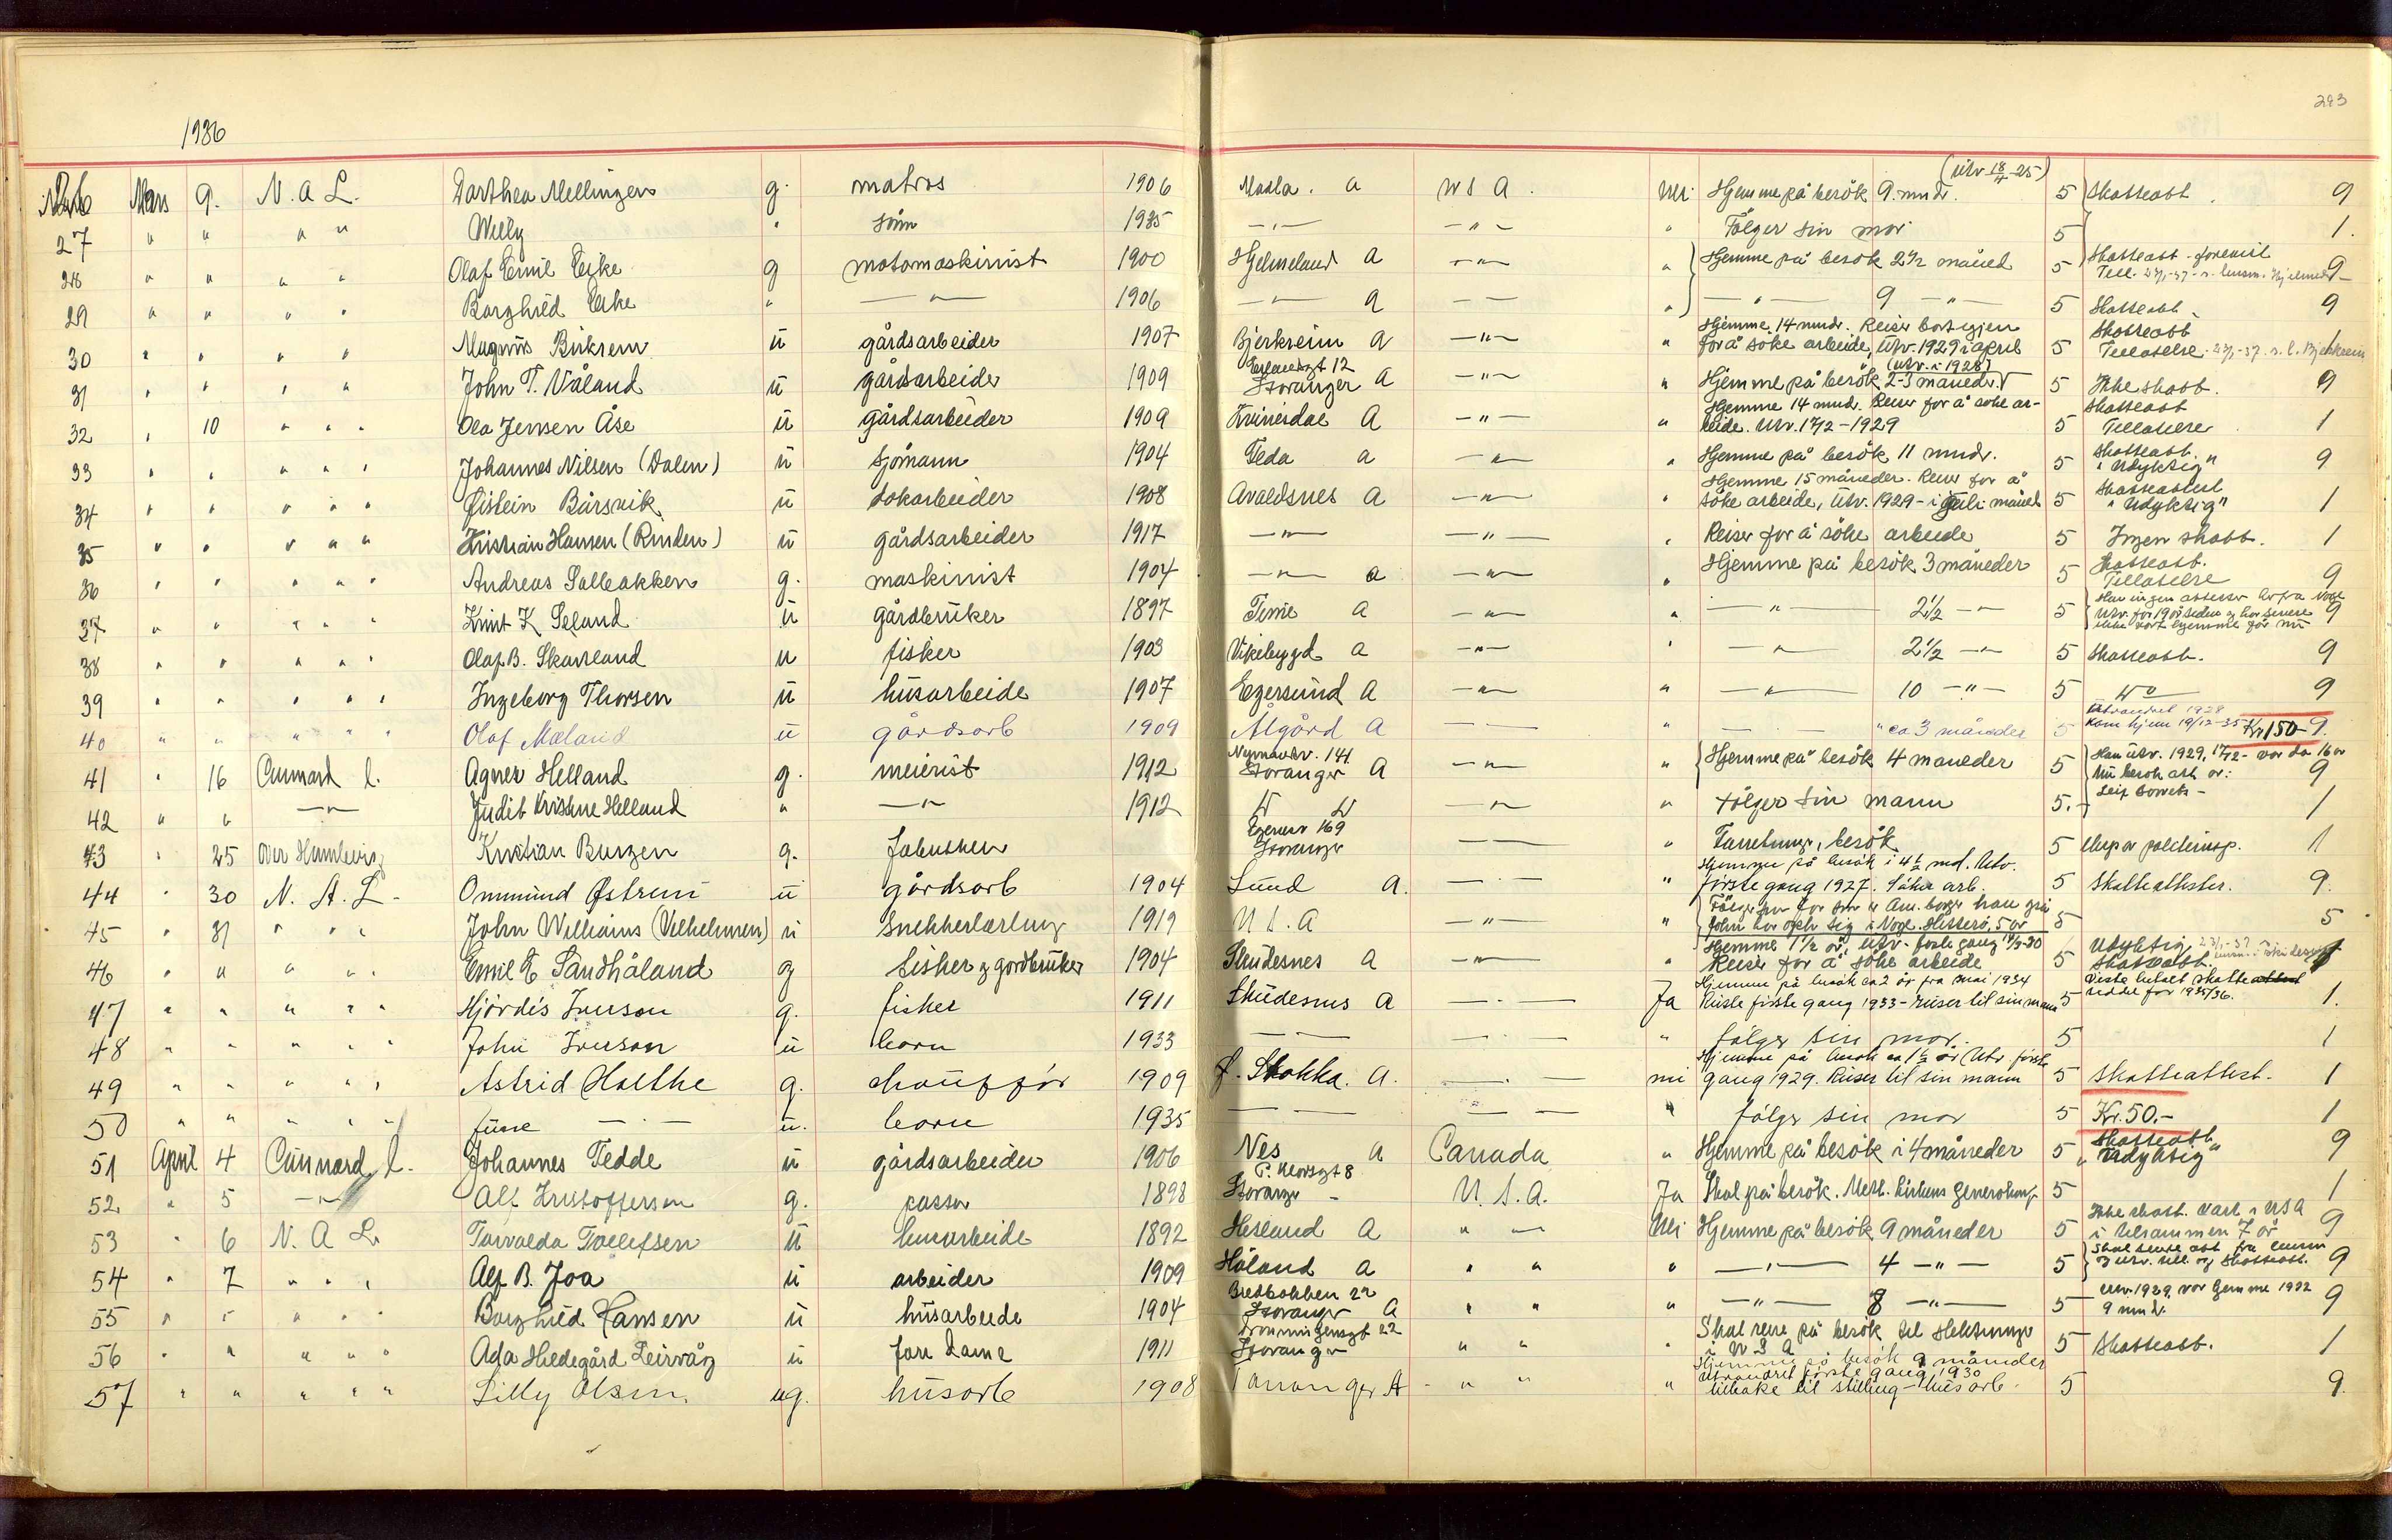 1936
283
Mars 9. N. A. L. Dorthea Mellingen g. matros 1906 Madla. a U S A. Nei Hjemme på besök 9. mndr. (Utv 18/4-25) 5 Skatteatt. 9
27 " " " " Willy " sönn 1935 — " — — " — " Fölger sin mor 5 1.
28 " " " " Olaf Emil Eike g motormaskinist 1900 Hjelmeland a — " — " Hjemme på besök 2 1/2 måned 5 Skatteatt. forevist 9
29 " " " " Borghild Eike " — " — 1906 — " — a — — " — " — 9 — " — 5 Skatteatt. 9
30 " " " " Magnus Birkrem u gårdsarbeider 1907 Bjerkreim a — " — " Hjemme 14 mndr. Reiser bort igjen
for å söke arbeide, Utv. 1929 i april 5 Skatteatt
Tillatelse 27/1-37. s. l. Bjerkreim 1
31 " " " " John T. Våland u gårdsarbeider 1909 Stavanger a — " — " Hjemme på besök 2-3 måneder. (utv. i 1928) 5 Ikke skatt. 9
32 " 10 " " " Ola Jensen Åse u gårdsarbeider 1909 Kvinesdal a — " — " Hjemme 14 mnd. Reiser for å söke ar-
beide. Utv. 17/2-1929 5 Skatteatt
Tillatelse 1
33 " " " " " Johannes Nilsen (Dalen) u sjömann 1904 Feda a — " — " Hjemme på besök 11 mndr. 5 Skatteatt.
"Udyktig" 9
34 " " " " " Øistein Bårsvik u dokarbeider 1908 Avaldsnes a — " — " Hjemme 15 måneder. Reiser for å
söke arbeide, Utv. 1929 - i juli måned 5 Skatteattest
"Udyktig" 1
35 " " " " " Kristian Hansen (Rinden) u gårdsarbeider 1917 — " — — " — " Reiser for å söke arbeide 5 Ingen skatt. 1
36 " " " " " Andreas Salleakken g. maskinist 1904 — " — a — " — " Hjemme på besök 3 måneder 5 Skatteatt.
Tillatelse 9
37 " " " " " Knut K Seland u gårdbruker 1897 Time a — " — " — " — 2 1/2 — " — 5 Har ingen attester
Utv. for 19 år siden og har senere
ikke vært hjemme för nu 9
38 " " " " " Olaf B. Skaveland u fisker 1903 Vikebygd a — " — " — " — 2 1/2 — " — 5 Skatteatt. 9
39 " " " " " Ingeborg Thorsen u husarbeide 1907 Egersund a — " — " — " — 10 — " — 5 9
40 " " " " " Olaf Mæland u gårdsarb 1909 Ålgård a — — " — — " ca 3 måneder 5 Utvandret 1928
Kom hjem 19/12-35 Kr 150- 9.
41 " 16 Cunnard l. Agner Helland g. meierist 1912 Stavanger a — " — " Hjemme på besök 4 måneder 5 Han utv. 1929, 17/12 - var da 16 år
9
42 " " — " — Judit Kristine Helland " — " — 1912 — " — " Fölger sin mann 5. 1
43 " 25 Over Hamburg Kristian Burgen g. Stavanger — — " besök 5 1
44 " 30 N. A. L. Ommund Østrem u gårdsarb 1904 Lund a. — — " Hjemme på besök i 4 1/2 md. Utv.
förste gang 1927. Söker arb. 5 Skatteattester. 9.
45 " 31 " " " John Williams (Vilhelmsen) u Snekkerlærling 1919 U S. A — " — " 5 5
46 " " " " " Emil E Sandhåland g fisker og gårdbruker 1904 Skudesnes a — " — " Hjemme 1 1/2 år, utv. förste gang
Reiser for å söke arbeide 5 Udyktig
Skatteatt.
47 " " " " " Hjördis Iverson g. fisker 1911 Skudesnes a — — Ja Hjemme på besök ca 2 år fra mai 1934
Reiste förste gang 1933 - reiser til sin mann 5 Viste betalt skatte
seddel for 1935/36. 1.
48 " " " " " John Iverson u barn 1933 — — — — " fölger sin mor. 5 1
49 " " " " " Astrid Holthe g. chauffför 1909 a. — — nei Hjemme på besök ca 1 1/2 år Utv förste
gang 1929. Reiser til sin mann 5 Skatteattest. 1
50 " " " " " June — — u. barn 1935 — — — — " fölger sin mor 5 Kr. 50.- 1
51 April 4 Cunnard l. Johannes Tedde u gårdsarbeider 1906 Nes a Canada " Hjemme på besök i 4 måneder 5 Skatteatt.
"Udyktig" 9
52 " 5 — " — Alf Kristoffersen g. 1898 Stavanger - U. S. A. Ja Skal på besök. 5 1
53 " 6 N. A L. Torvalda Tollefsen u husarbeide 1892 Hesland a " " Nei Hjemme på besök 9 måneder 5 Ikke skatt. Vært i USA
i tilsammen 7 år 9
54 " 7 " " " Alf B. Joa u arbeider 1909 Håland a " " " — " — 4 — " — 5 9
55 " " " " " Borghild Hansen u husarbeide 1904 Bredbakken 22
Stavanger a " " " — " — 8 — " — 5 Utv. 1929 var hjemme 1932
9 mndr. 9
56 " " " " " Ada Hildegård Leirvåg u 1911 Dronningensgt 22
Stavanger " " " Skal reise på besök til slektninger
i U S A 5 Skatteatt. 1
57 " " " " " Lilly Olsen. ug. husarb 1908 Tananger A " " " Hjemme på besök 9 måneder
Utvandret förste gang 1930
tilbake til stilling - husarb. 5 9.